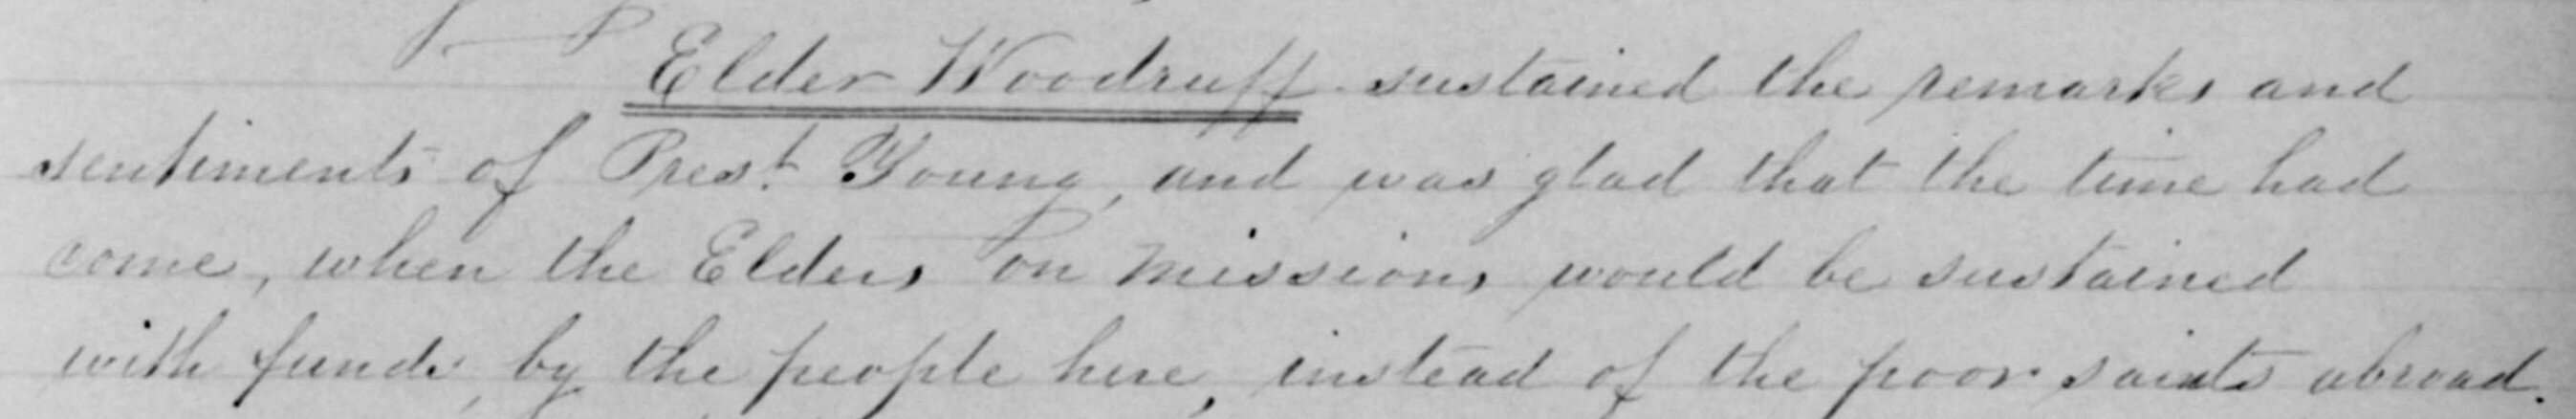 Elder Woodruff sustained the remarks and
sentiments of Prest. Young, and was glad that the time had
come, when the Elders on missions would be sustained
with funds, by the people here, instead of the poor saints abroad.